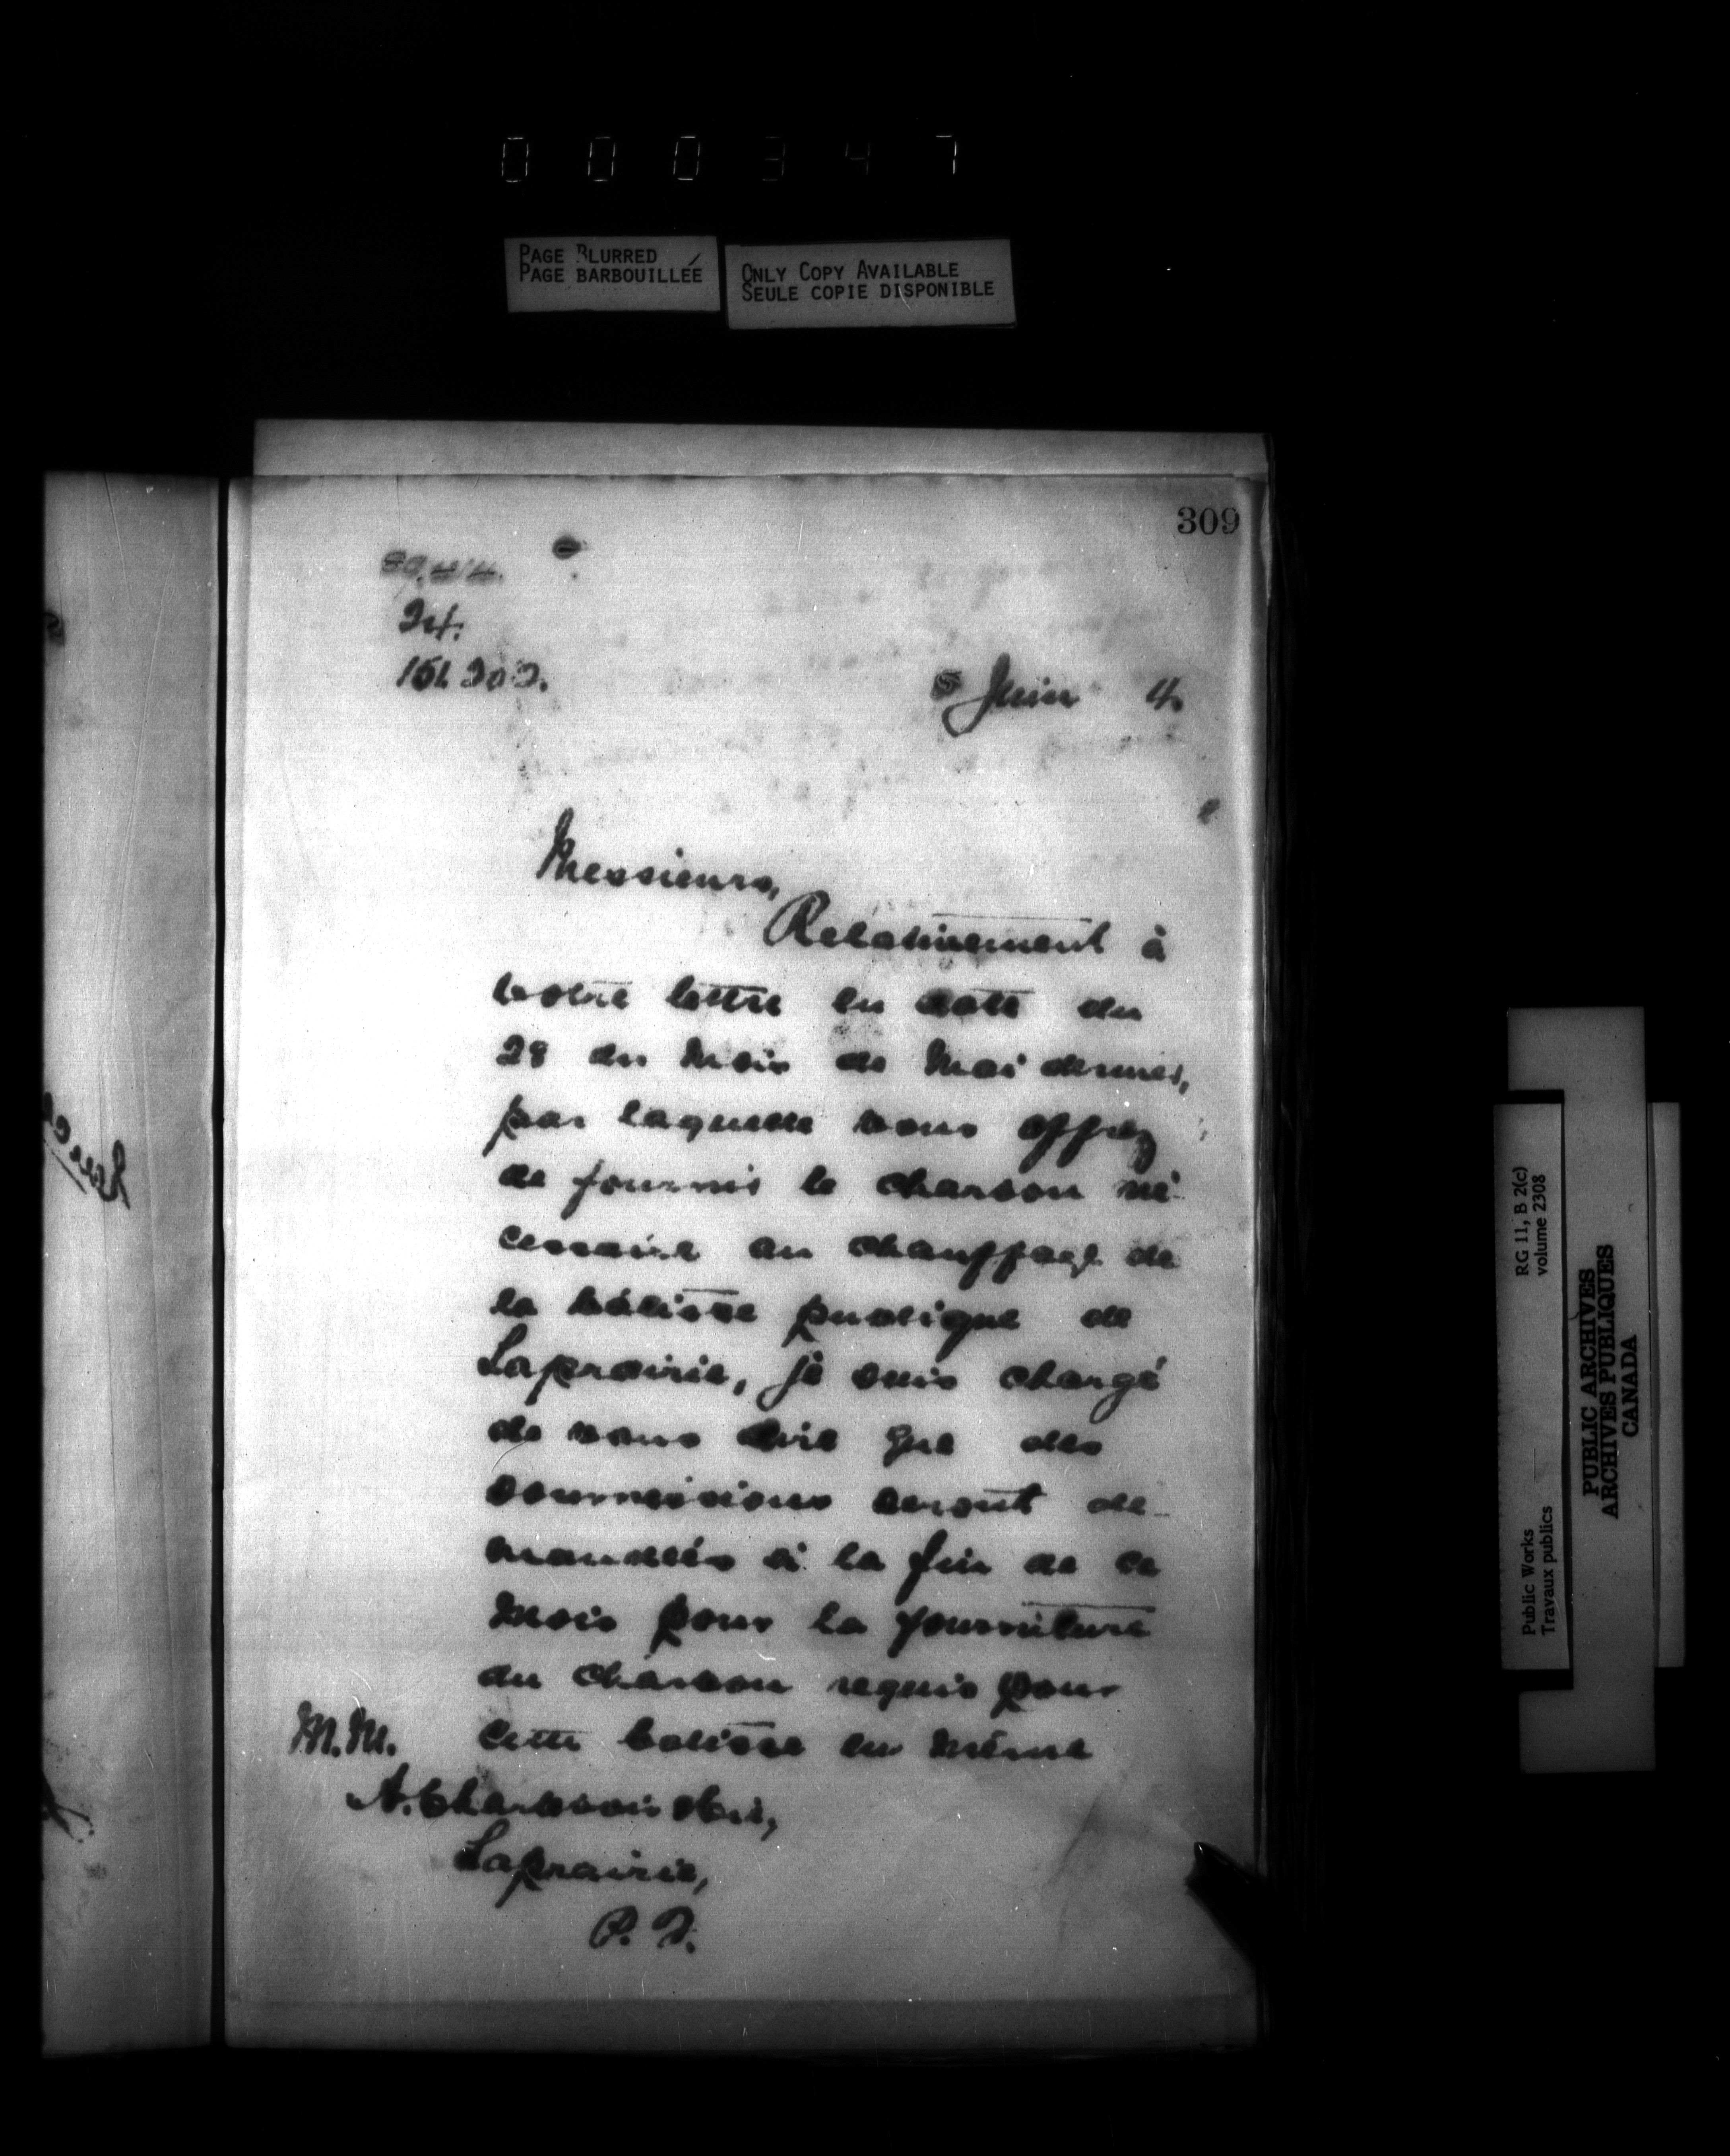 000347
PAGE BLURRED
PAGE BARBOUILLÉE
ONLY COPY AVAILABLE
SEULE COPIE DISPONIBLE
309
151.202.
5 Juin 4.
Messieurs,
Relativement à
votre lettre en date du
28 du mois de Mai dernier,
par laquelle vous offrez
de fournir le charbon né-
cessaire au chauffage de
la bâtisse publique de
Laprairie, je suis chargé
de vous dire que des
soumissions seront de-
mandées à la fin de ce
mois pour la fourniture
du charbon requis pour
M.M. cette batisse en même
A. Charbon
Laprairie,
P. Q.
Public Works
Travaux publics
RG 11, B 2(c)
volume 2308
PUBLIC ARCHIVES
ARCHIVES PUBLIQUES
CANADA